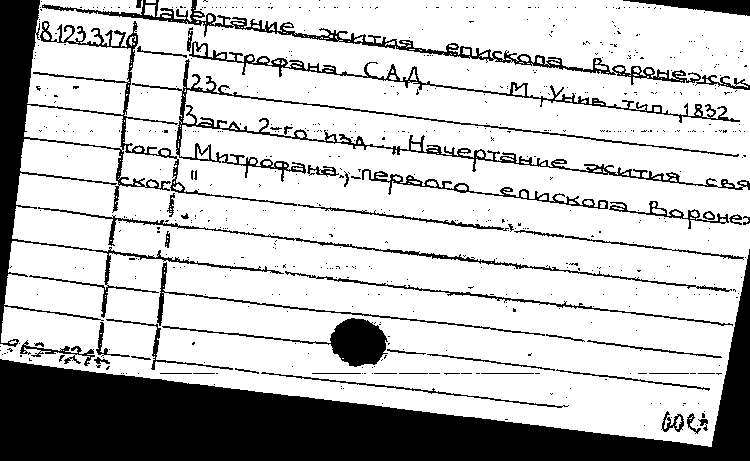 "Начертание жития епископа Воронежск
8.123.3.170. Митрофана. С.А.Д. М., Унив. тип., 1832.
23с.
Загл. 2-го изд.: „Начертание жития свя
того Митрофана, первого епископа Воронеж
ского"